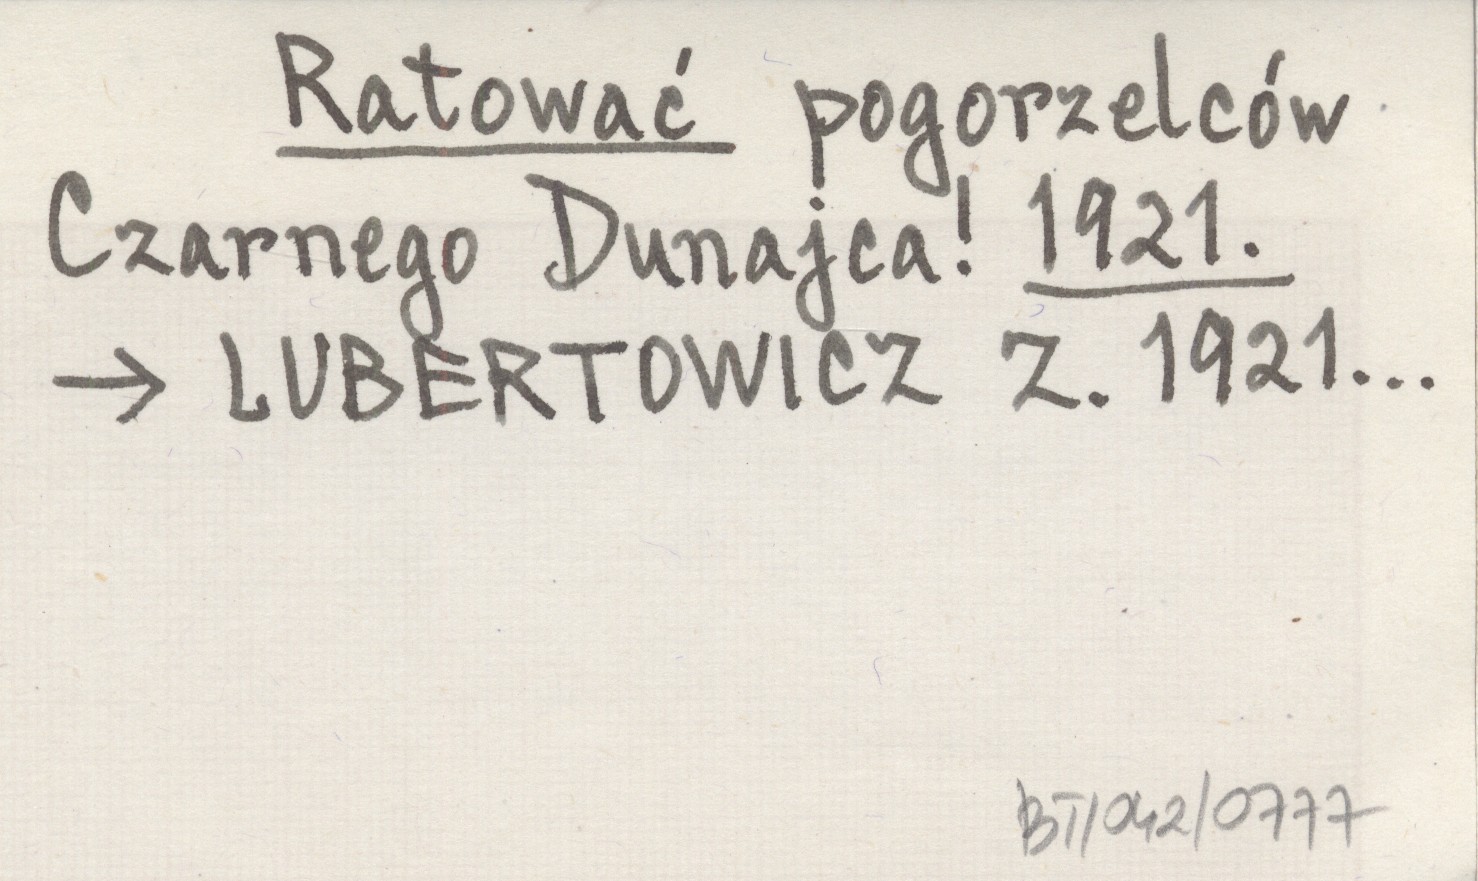 Ratować pogorzelców
Czarnego Dunajca! 1921.
→ LUBERTOWICZ Z. 1921...
BT/042/0777